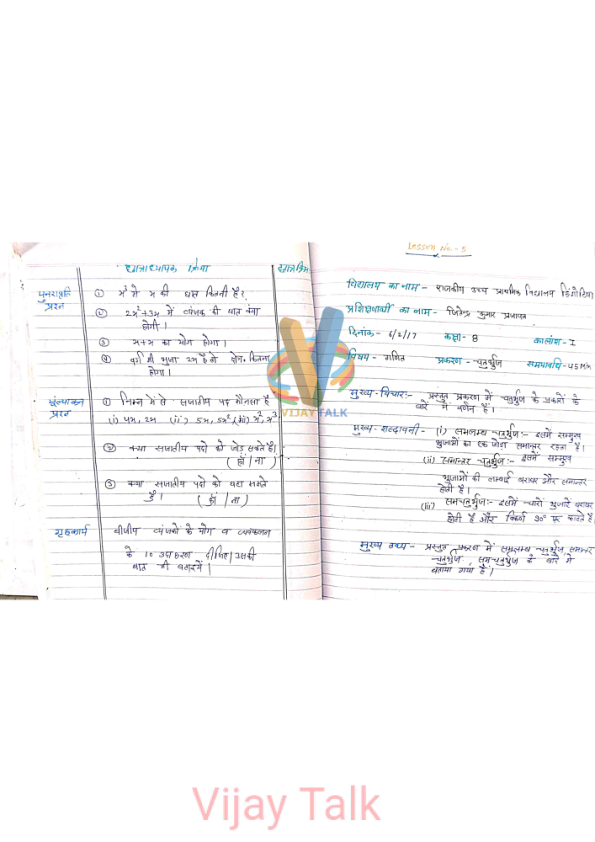 छात्राध्यापक क्रिया
छात्रक्रिया
पुनरावृत्ति
प्रश्न
① x³ में x की घात कितनी है?
② 2x²+3x में व्यंजक की घात क्या
होगी।
③ x+x का योग होगा।
④ वर्ग की भुजा 2x है तो क्षे० कितना
होगा।
मूल्यांकन
प्रश्न
① निम्न में से सजातीय पद कौनसा है
(i) 4x, 2x (ii) 5x, 5x² (iii) x², x³
② क्या सजातीय पदों को जोड़ सकते है।
(हाँ / ना)
③ क्या सजातीय पदों को घटा सकते
है।
(हाँ / ना)
गृहकार्य
बीजीय व्यंजकों के योग व व्यवकलन
के 10 उदाहरण दीजिए। उसकी
घात भी बताइये।
Lesson No. - 5
विद्यालय का नाम - राजकीय उच्च प्राथमिक विद्यालय
प्रशिक्षणार्थी का नाम - जितेन्द्र कुमार प्रजापत
दिनांक - 6/2/17 कक्षा - 8 कालांश - I
विषय - गणित प्रकरण - चतुर्भुज समयावधि - 45 Min
मुख्य-विचार:- प्रस्तुत प्रकरण में चतुर्भुज के प्रकारों के
बारे में वर्णन है।
मुख्य-शब्दावली - (i) समलम्ब चतुर्भुज:- इसमें सम्मुख
भुजाओं का एक जोड़ा समान्तर रहता है।
(ii) समान्तर चतुर्भुज:- इसमें सम्मुख
भुजाओं की लम्बाई बराबर और समान्तर
होती है।
(iii) समचतुर्भुज:- इसमें चारों भुजाएँ बराबर
होती है और विकर्ण 90° पर काटते है।
मुख्य तथ्य - प्रस्तुत प्रकरण में समलम्ब चतुर्भुज, समान्तर
चतुर्भुज, समचतुर्भुज के बारे में
बताया गया है।
VIJAY TALK
Vijay Talk